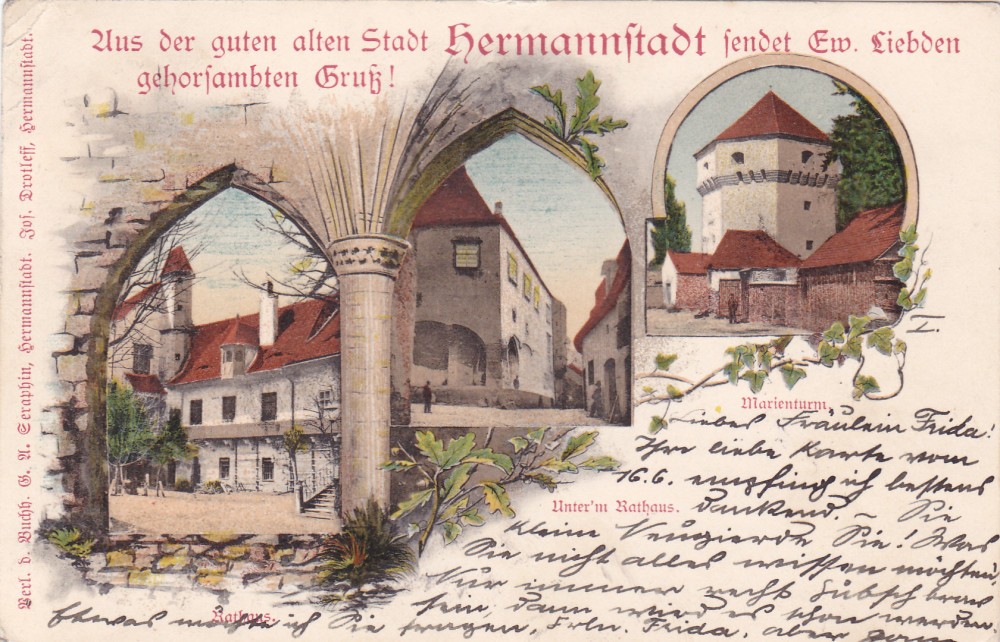 Aus der guten alten Stadt Hermannſtadt ſendet Ew. Liebden
gehorſambten Gruß!
Verl. d. Buchh. G. A. Seraphin, Hermannſtadt. Joſ. Drotleff, Hermannſtadt.
I.
Marienturm.
Unter'm Rathaus.
Rathaus.
Liebes Fräulein Frida!
Ihre liebe Karte vom
16.6. empfing ich bestens
dankend. – Sie
kleine Neugierde Sie! Was
Sie nicht alles wissen möchten!
Nur immer recht hübsch brav
sein, dann wird es schon werden.
Etwas möchte ich Sie fragen, Frln. Frida, aber ganz